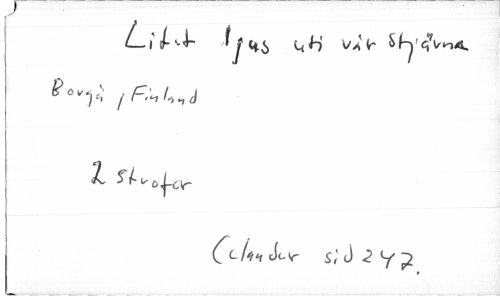 Litet ljus uti vår stjärna
Borgå, Finland
2 strofer
Celander sid 247.